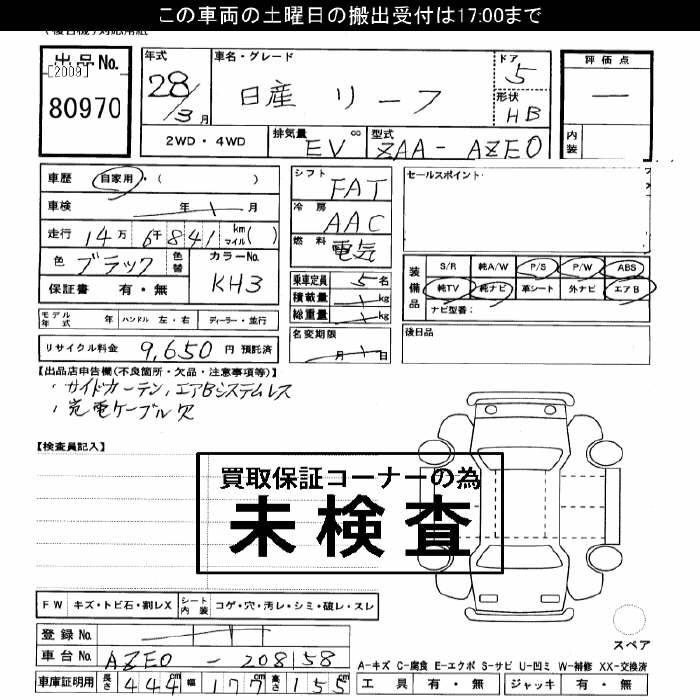 この車両の土曜日の搬出受付は17:00まで
出品No. [2009] 80970
年式 28/3月
車名・グレード 日産 リーフ
ドア 5
形状 HB
評価点 ―
内装
2WD・4WD 排気量 EV cc 型式 ZAA-AZE0
車歴 自家用・( )
車検 年 月
走行 14万 6千 841 km マイル( )
色 ブラック 色替 カラーNo. KH3
保証書 有・無
シフト FAT
冷房 AAC
燃料 電気
乗車定員 5名
積載量 kg
総重量 kg
名変期限 月 日
セールスポイント
装備品 S/R 純A/W P/S P/W ABS
純TV 純ナビ 革シート 外ナビ エアB
ナビ型番:
後日品
モデル年式 年 ハンドル 左・右 ディーラー・並行
リサイクル料金 9,650 円 預託済
【出品店申告欄(不良箇所・欠品・注意事項等)】
・サイドカーテン,エアBシステムレス
・充電ケーブル欠
【検査員記入】
買取保証コーナーの為
未検査
FW キズ・トビ石・割レX シート内装 コゲ・穴・汚レ・シミ・破レ・スレ
スペア
登録No.
車台No. AZE0 - 208158
A-キズ C-腐食 E-エクボ S-サビ U-凹ミ W-補修 XX-交換済
車庫証明用 長さ 444cm 幅 177cm 高さ 155cm
工具 有・無 ジャッキ 有・無